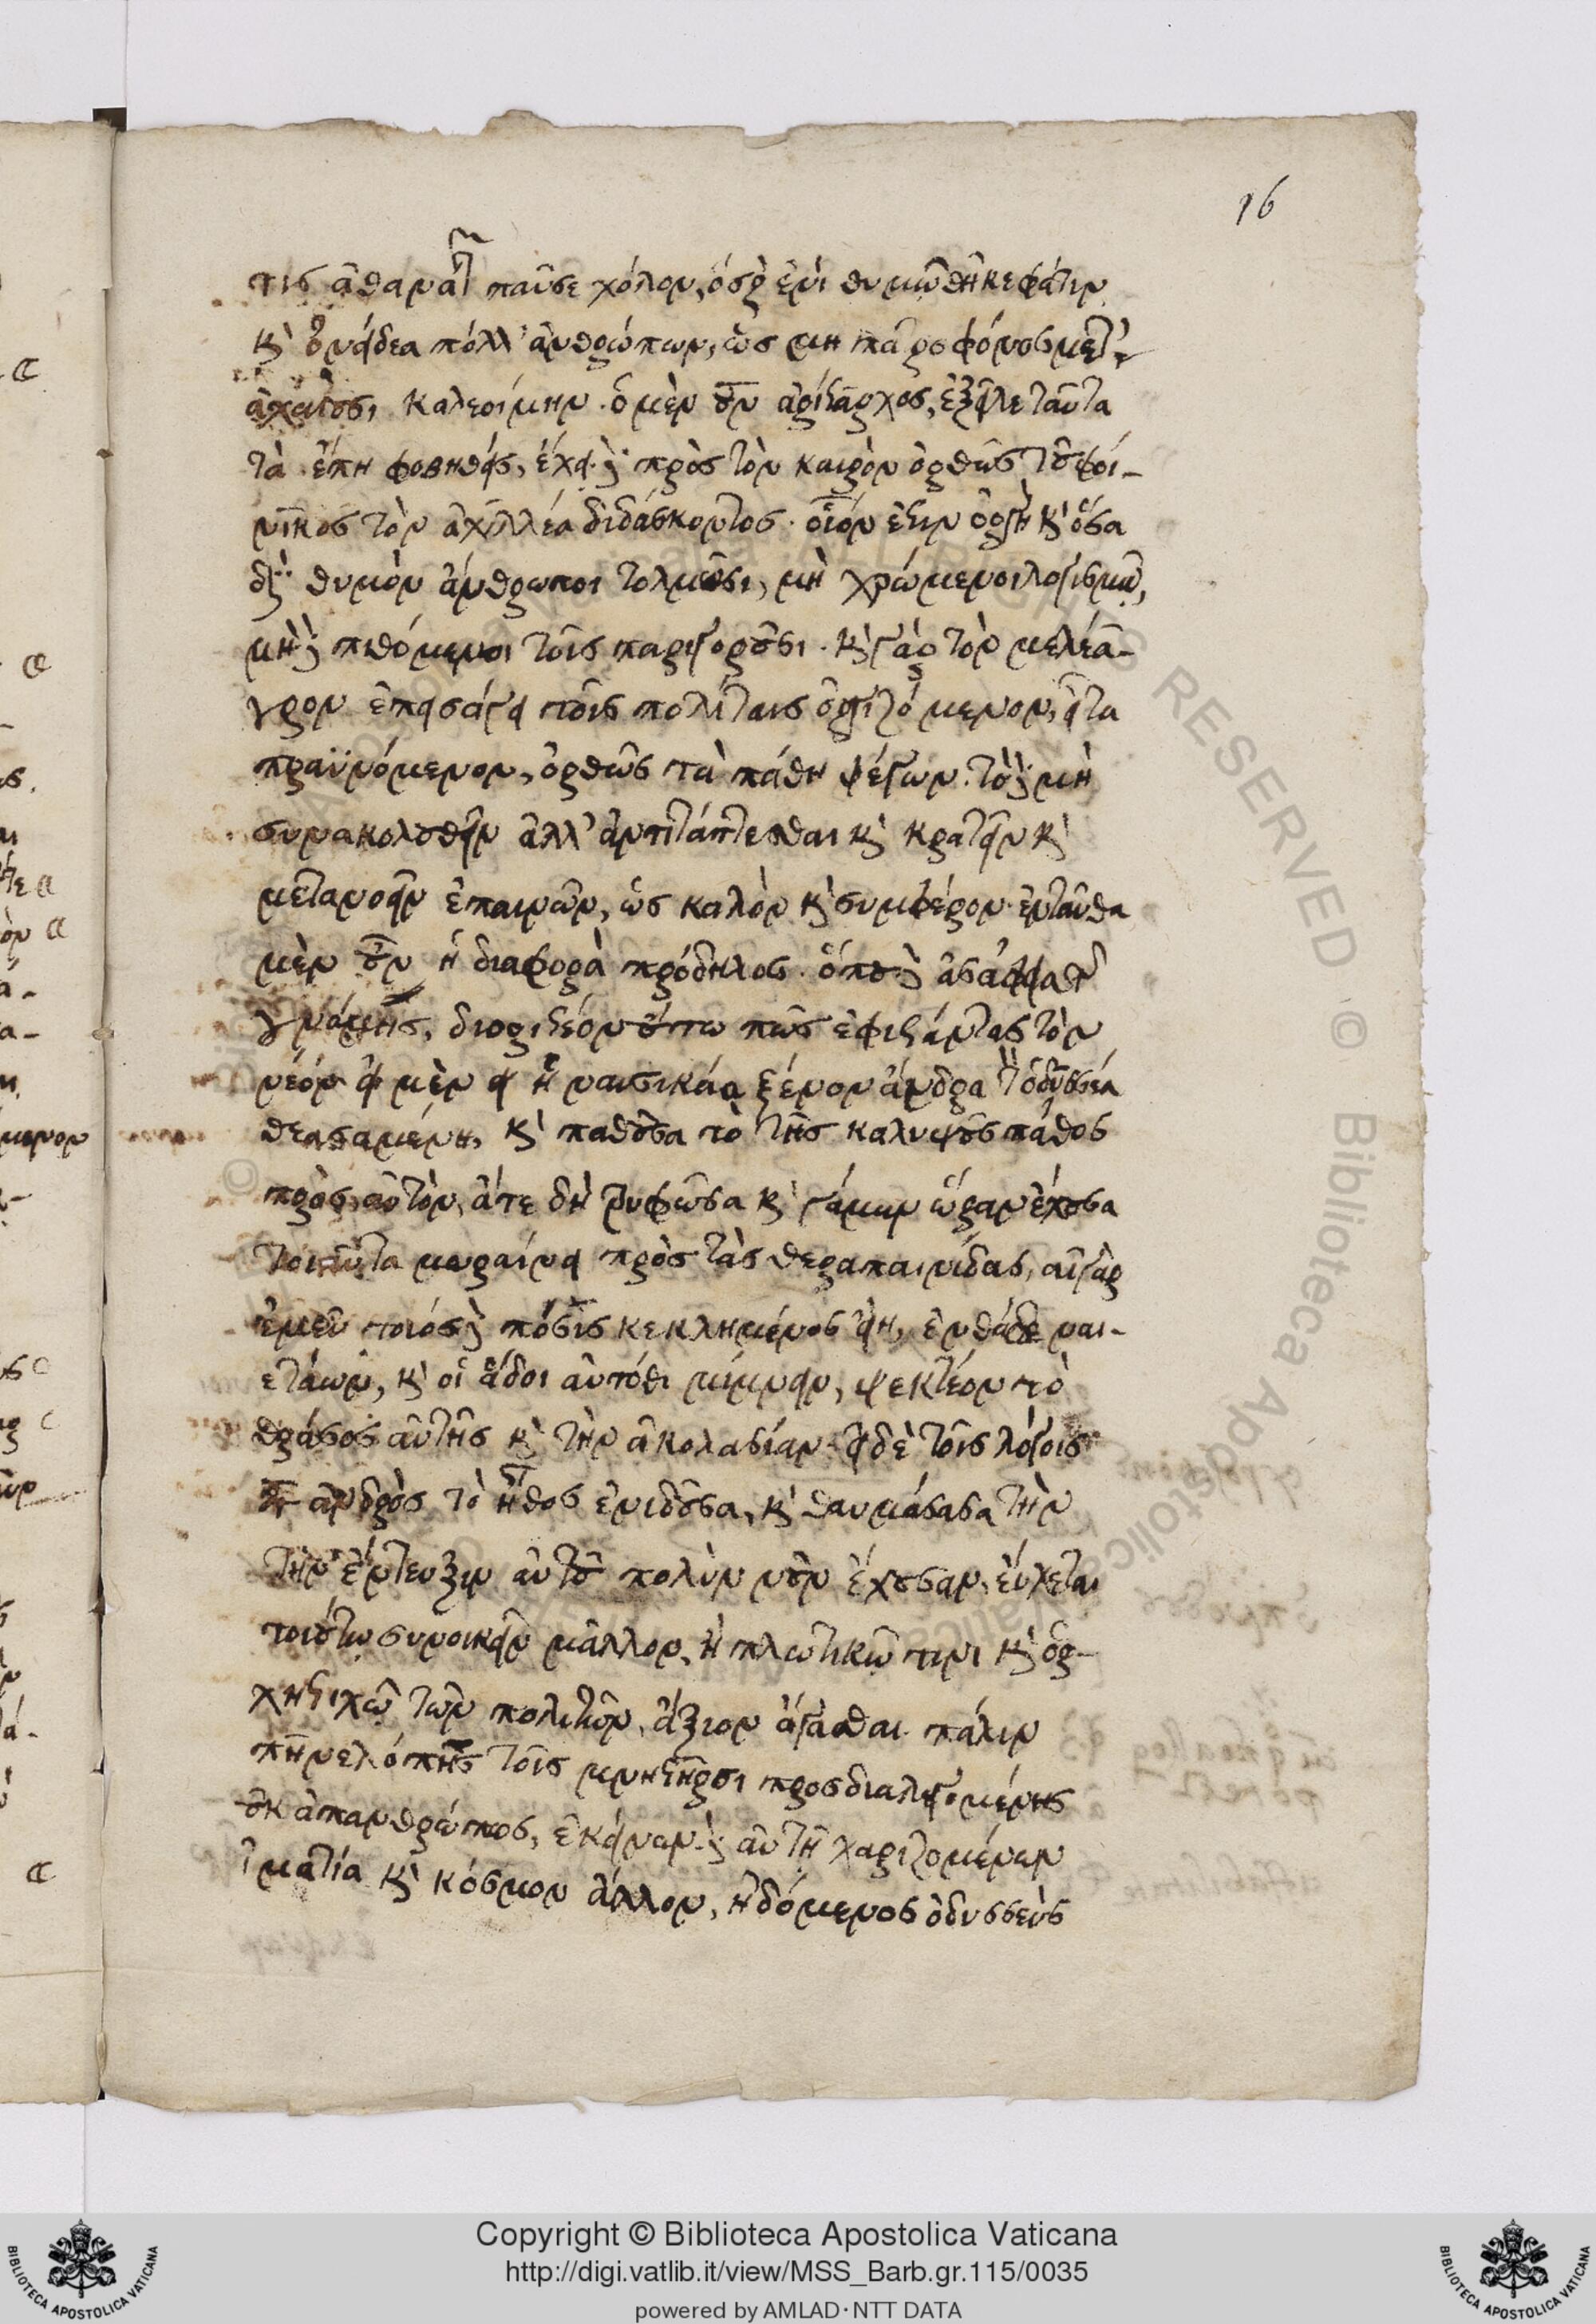 16
τις ἀθανάτων παῦσε χόλον, ὅς ῥ' ἐνὶ θυμῷ θῆκε φάτιν
καὶ ὀνείδεα πόλλ' ἀνθρώπων, ὡς μὴ πατροφόνος μετ'
ἀχαιοῖσι καλεοίμην. ὁ μὲν οὖν ἀρίσταρχος, ἐξεῖλε ταῦτα
τὰ ἔπη φοβηθείς, ἔχει δὲ πρὸς τὸν καιρὸν ὀρθῶς τοῦ φοί-
νικος τὸν ἀχιλλέα διδάσκοντος. οἷόν ἐστιν ὀργὴ καὶ ὅσα
διὰ θυμὸν ἄνθρωποι τολμῶσι, μὴ χρώμενοι λογισμῷ,
μὴ δὲ πιθόμενοι τοῖς παρηγοροῦσι. καὶ γὰρ τὸν μελέα-
γρον ἐπεισάγει τοῖς πολίταις ὀργιζόμενον, εἶτα
πραϋνόμενον, ὀρθῶς τὰ πάθη ψέγων. τὸ δὲ μὴ
συνακολουθεῖν ἀλλ' ἀντιτάττεσθαι καὶ κρατεῖν καὶ
μετανοεῖν ἐπαινῶν, ὡς καλὸν καὶ συμφέρον. ἐνταῦθα
μὲν οὖν ἡ διαφορὰ πρόδηλος. ὅπου δὲ ἀσάφεια τῆς
γνώμης, διοριστέον οὕτω πως ἐφιστάντας τὸν
νέον. εἰ μὲν ἡ ναυσικάα ξένον ἄνδρα τὸν ὀδυσσέα
θεασαμένη, καὶ παθοῦσα τὸ τῆς καλυψοῦς πάθος
πρὸς αὐτὸν, ἅτε δὴ τρυφῶσα καὶ γάμων ὥραν ἔχουσα
τοιαῦτα μωραίνει πρὸς τὰς θεραπαινίδας, αἲ γὰρ
ἐμοὶ τοιόσδε πόσις κεκλημένος εἴη, ἐνθάδε ναι-
ετάων, καὶ οἱ ἅδοι αὐτόθι μίμνειν, ψεκτέον τὸ
θράσος αὐτῆς καὶ τὴν ἀκολασίαν. εἰ δὲ τοῖς λόγοις
τοῦ ἀνδρὸς τὸ ἦθος ἐνιδοῦσα, καὶ θαυμάσασα τὴν
τὴν ἔντευξιν αὐτοῦ πολὺν νοῦν ἔχουσαν, εὔχεται
τοιούτῳ συνοικεῖν μᾶλλον, ἢ πλωτικῷ τινι καὶ ὀρ-
χηστικῷ τῶν πολιτῶν, ἄξιον ἄγασθαι. πάλιν
πηνελόπης τοῖς μνηστῆρσι προσδιαλεγομένης
οὐκ ἀπανθρώπως, ἐκείνων δὲ αὐτῇ χαριζομένων
ἱμάτια καὶ κόσμον ἄλλον, ἡδόμενος ὀδυσσεὺς
© Biblioteca Apostolica Vaticana
Copyright © Biblioteca Apostolica Vaticana
http://digi.vatlib.it/view/MSS_Barb.gr.115/0035
powered by AMLAD·NTT DATA
BIBLIOTECA APOSTOLICA VATICANA
BIBLIOTECA APOSTOLICA VATICANA